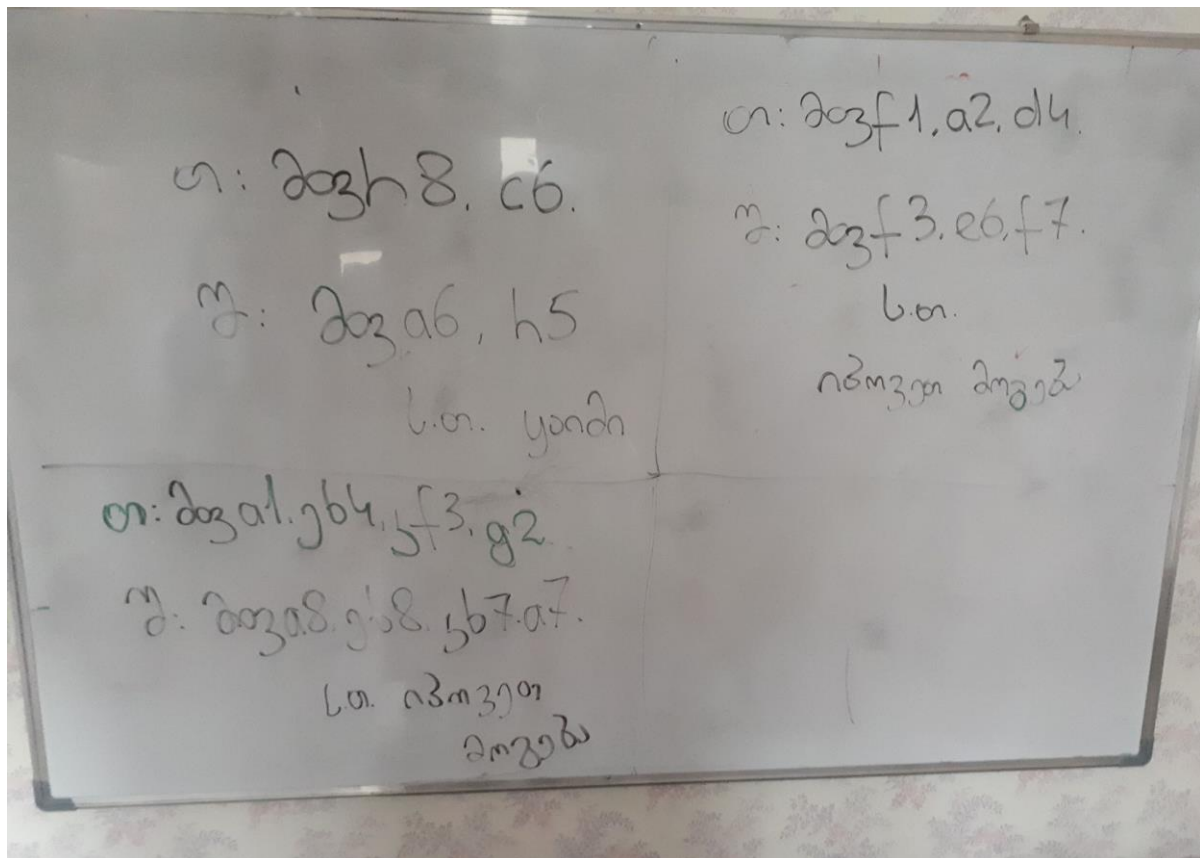 თ: მფ h8, c6.
შ: მფ a6, h5
ს.თ. ყაიმი
თ: მფ f1, a2, d4.
შ: მფ f3, e6, f7.
ს.თ.
იპოვეთ მოგება
თ: მფ a1, ეb4, კf3, g2
შ: მფ a8, ეb8, კb7, a7.
ს.თ. იპოვეთ
მოგება